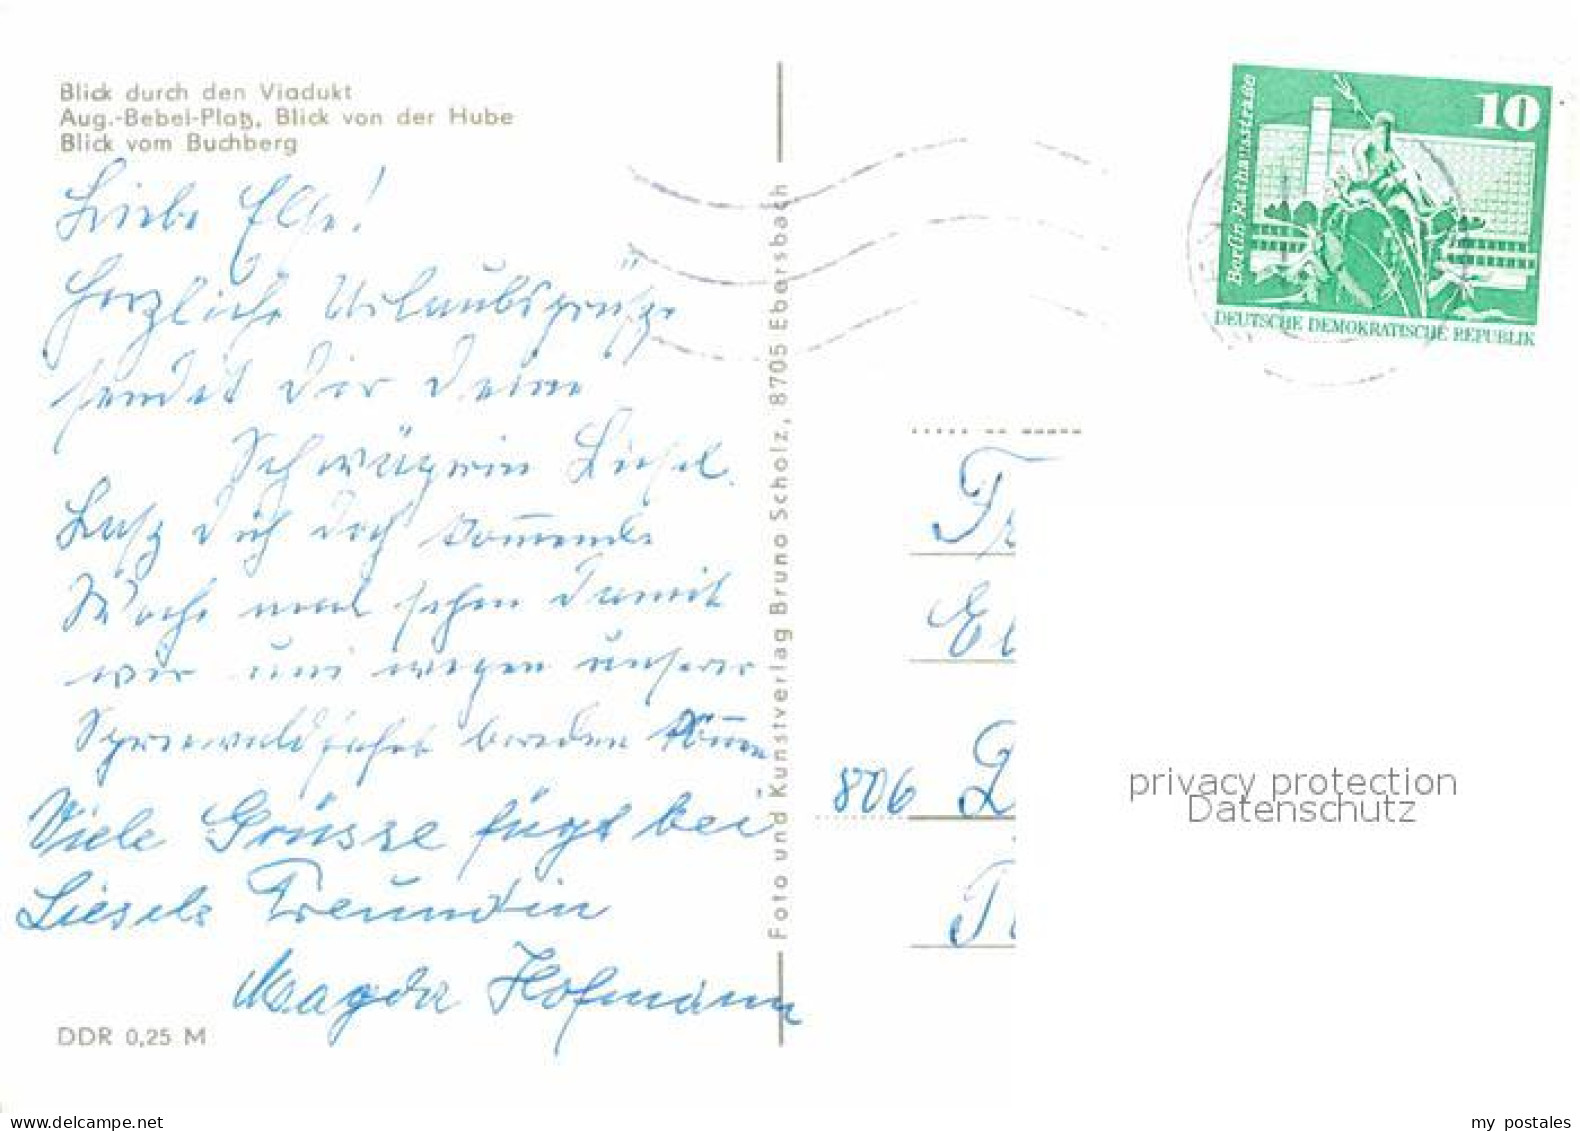 Blick durch den Viadukt
Aug.-Bebel-Platz, Blick von der Hube
Blick vom Buchberg
Liebe Else!
Herzliche Urlaubsgrüße
sendet Dir Deine
Schwägerin Liesel.
Laß Dich doch kommende
Woche mal sehen damit
wir uns wegen unserer
Spreewaldfahrt bereden können
Viele Grüsse fügt bei
Liesels Freundin
Magda Hofmann
DDR 0,25 M
Foto und Kunstverlag Bruno Scholz, 8705 Ebersbach
Berlin-Rathausstraße
10
DEUTSCHE DEMOKRATISCHE REPUBLIK
Fr
El
806 D
privacy protection
Datenschutz
www.delcampe.net
my_postales